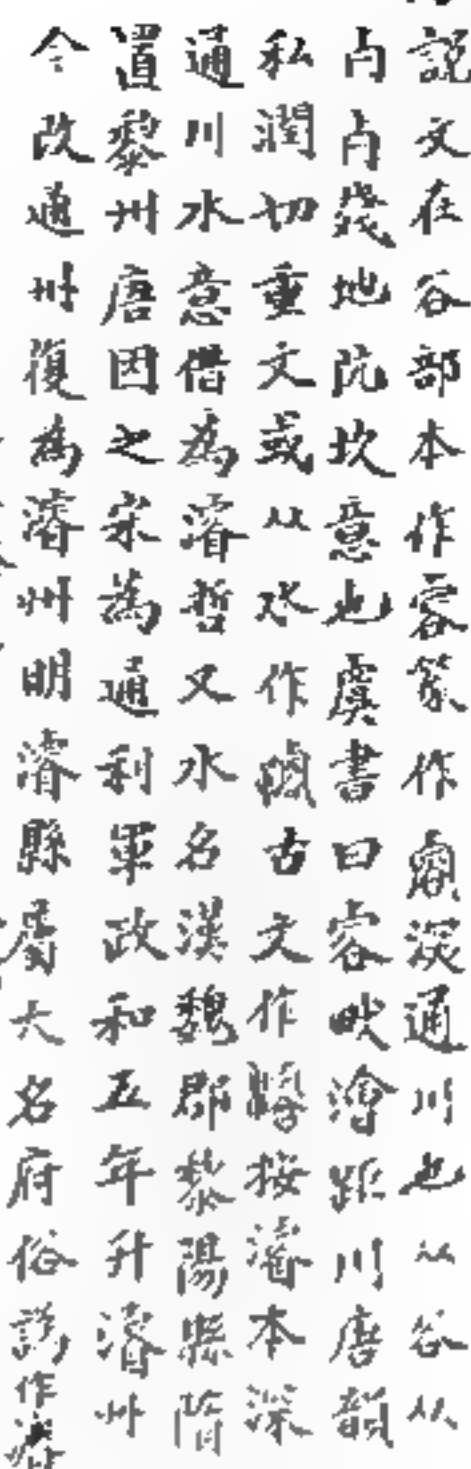 說文在谷部本作睿篆作𧮷深通川也从谷从
卢卢殘地阬坎意也虞書曰睿畎澮距川唐韻
私潤切重文或从水作濬古文作𧯆按濬本深
通川水意借為濬哲又水名漢魏郡黎陽縣隋
置黎州唐因之宋為通利軍政和五年升濬州
今改通州復為濬州明濬縣屬大名府俗譌作濬